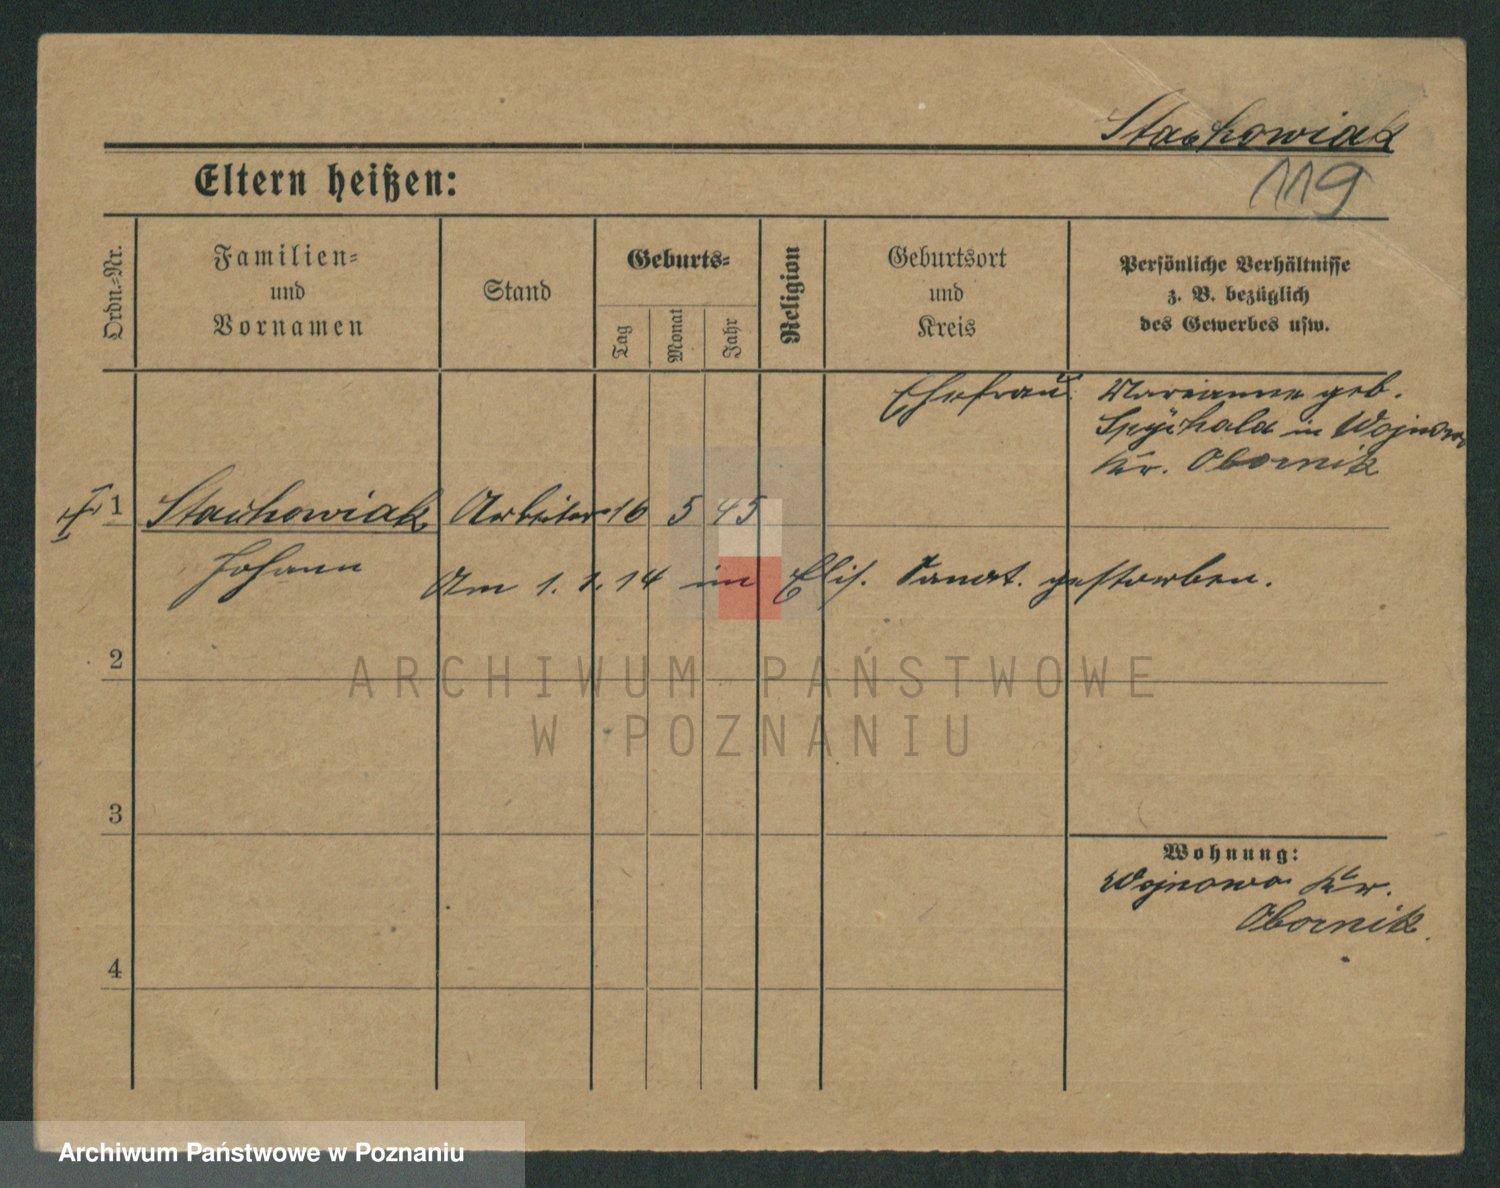 Stachowiak
119
Eltern heißen:
Ordn.-Nr.
Familien-
und
Vornamen
Stand
Geburts-
Tag
Monat
Jahr
Religion
Geburtsort
und
Kreis
Persönliche Verhältnisse
z. B. bezüglich
des Gewerbes usw.
Ehefrau Marianne geb.
Spychala in Wojnowo
Kr. Obornik
1 Stachowiak Arbeiter 16 5 45
Johann
Am 1. 1. 14 im Elis. Sanat. gestorben.
2
ARCHIWUM PAŃSTWOWE
W POZNANIU
3
Wohnung:
Wojnowo Kr.
Obornik.
4
Archiwum Państwowe w Poznaniu